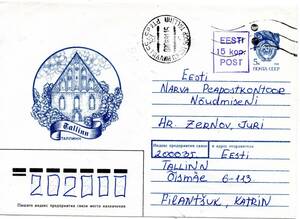 EESTI
15 kop.
POST
5к
ПОЧТА СССР
Eesti
Narva Peapostkontoor
Nõudmiseni
Hr. Zernov, Juri
Tallinn
ТАЛЛИНН
Индекс предприятия связи и адрес отправителя
200035 Eesti
Tallinn
Õismäe 6-113
Filantšuk, Katrin
202000
Пишите индекс предприятия связи места назначения